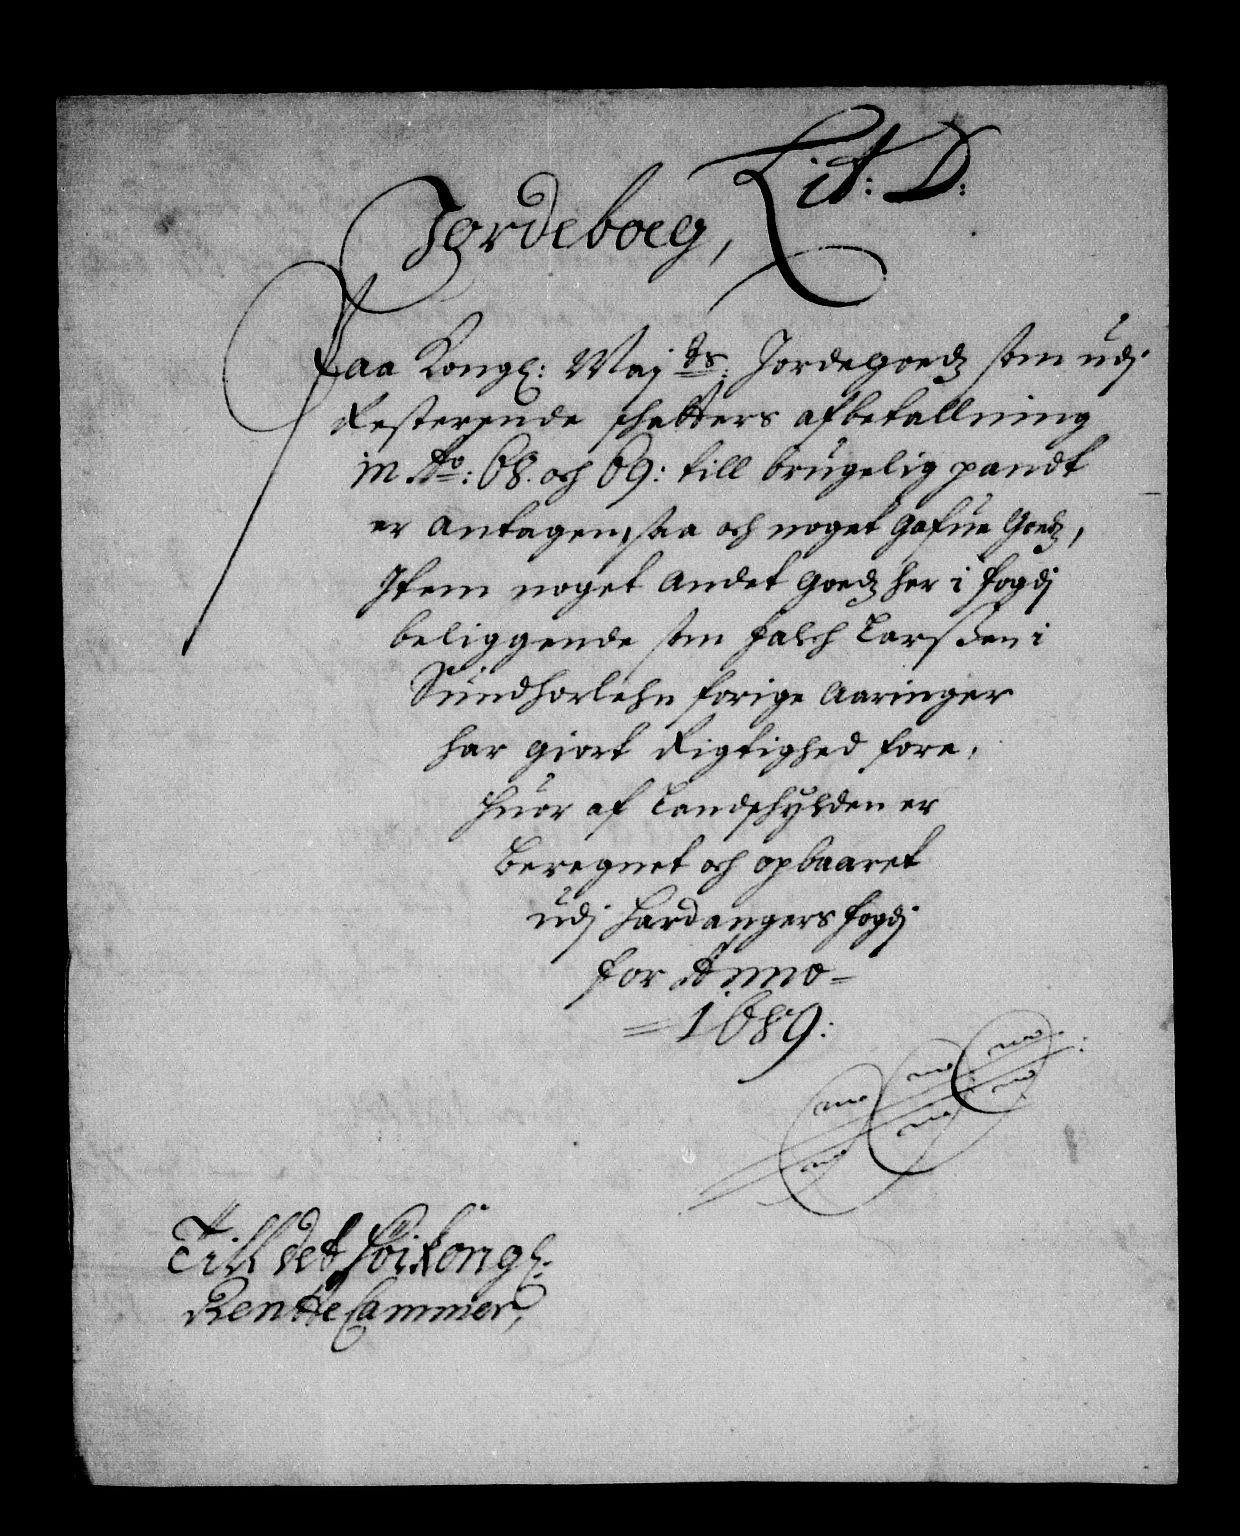 Lit: D:
Jordeboeg,
Paa Kongl: Maj.ts Jordegoedz som udj
Resterende schatters afbetallning
in Ao: 68. och 69: till brugelig pandt
er Antagen, saa och noget Gafue Goedz,
Item noget Andet Goedz her i fogdj
beliggende som Falch Larsßen i
Sundhorlehn forige Aaringer
har giort Rigtighed fore,
Huor af Landschylden er
Beregnet och opbaaret
udj Hardangers fogdj
for Anno
1689:
Till det høi Kongl:
Rentte Cammer,